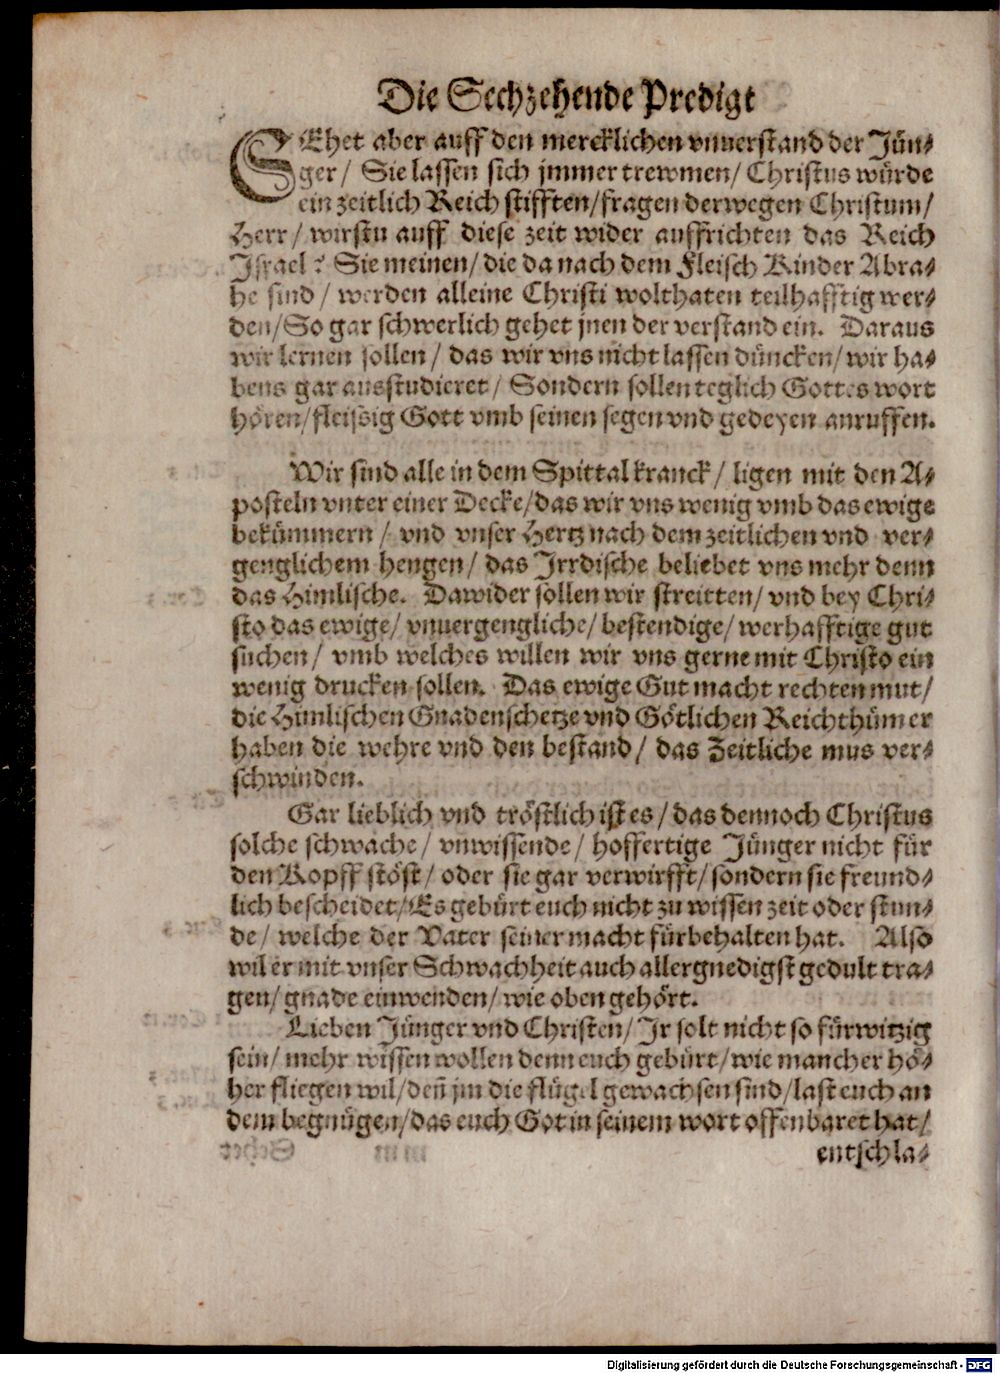 Die Sechzehende Predigt
SEhet aber auff den mercklichen vnuerstand der Jün⸗
ger/ Sie lassen sich jmmer trewmen/ Christus würde
ein zeitlich Reich stifften/fragen derwegen Christum/
Herr/ wirstu auff diese zeit wider auffrichten das Reich
Israel? Sie meinen/die da nach dem Fleisch Kinder Abra⸗
he sind/ werden alleine Christi wolthaten teilhafftig wer⸗
den/So gar schwerlich gehet jnen der verstand ein. Daraus
wir lernen sollen/ das wir vns nicht lassen düncken/wir ha⸗
bens gar ausstudieret/ Sondern sollen teglich Gottes wort
hören/fleissig Gott vmb seinen segen vnd gedeyen anruffen.
Wir sind alle in dem Spittal kranck/ ligen mit den A⸗
posteln vnter einer Decke/das wir vns wenig vmb das ewige
bekümmern/ vnd vnser Hertz nach dem zeitlichen vnd ver⸗
genglichem hengen/ das Irrdische beliebet vns mehr denn
das Himlische. Dawider sollen wir streitten/ vnd bey Chri⸗
sto das ewige/ vnuergengliche/ bestendige/ werhafftige gut
suchen/ vmb welches willen wir vns gerne mit Christo ein
wenig drucken sollen. Das ewige Gut macht rechten mut/
die Himlischen Gnadenschetze vnd Götlichen Reichthümer
haben die wehre vnd den bestand/ das Zeitliche mus ver⸗
schwinden.
Gar lieblich vnd tröstlich ist es/ das dennoch Christus
solche schwache/ vnwissende/ hoffertige Jünger nicht für
den Kopff stöst/ oder sie gar verwirfft/ sondern sie freund⸗
lich bescheidet/Es gebürt euch nicht zu wissen zeit oder stun⸗
de/ welche der Vater seiner macht fürbehalten hat. Also
wil er mit vnser Schwachheit auch allergnedigst gedult tra⸗
gen/ gnade einwenden/ wie oben gehört.
Lieben Jünger vnd Christen/ Jr solt nicht so fürwitzig
sein/ mehr wissen wollen denn euch gebürt/ wie mancher hö⸗
her fliegen wil/ deñ jm die flügel gewachsen sind/last euch an
dem begnügen/das euch Got in seinem wort offenbaret hat/
entschla⸗
Digitalisierung gefördert durch die Deutsche Forschungsgemeinschaft - DFG